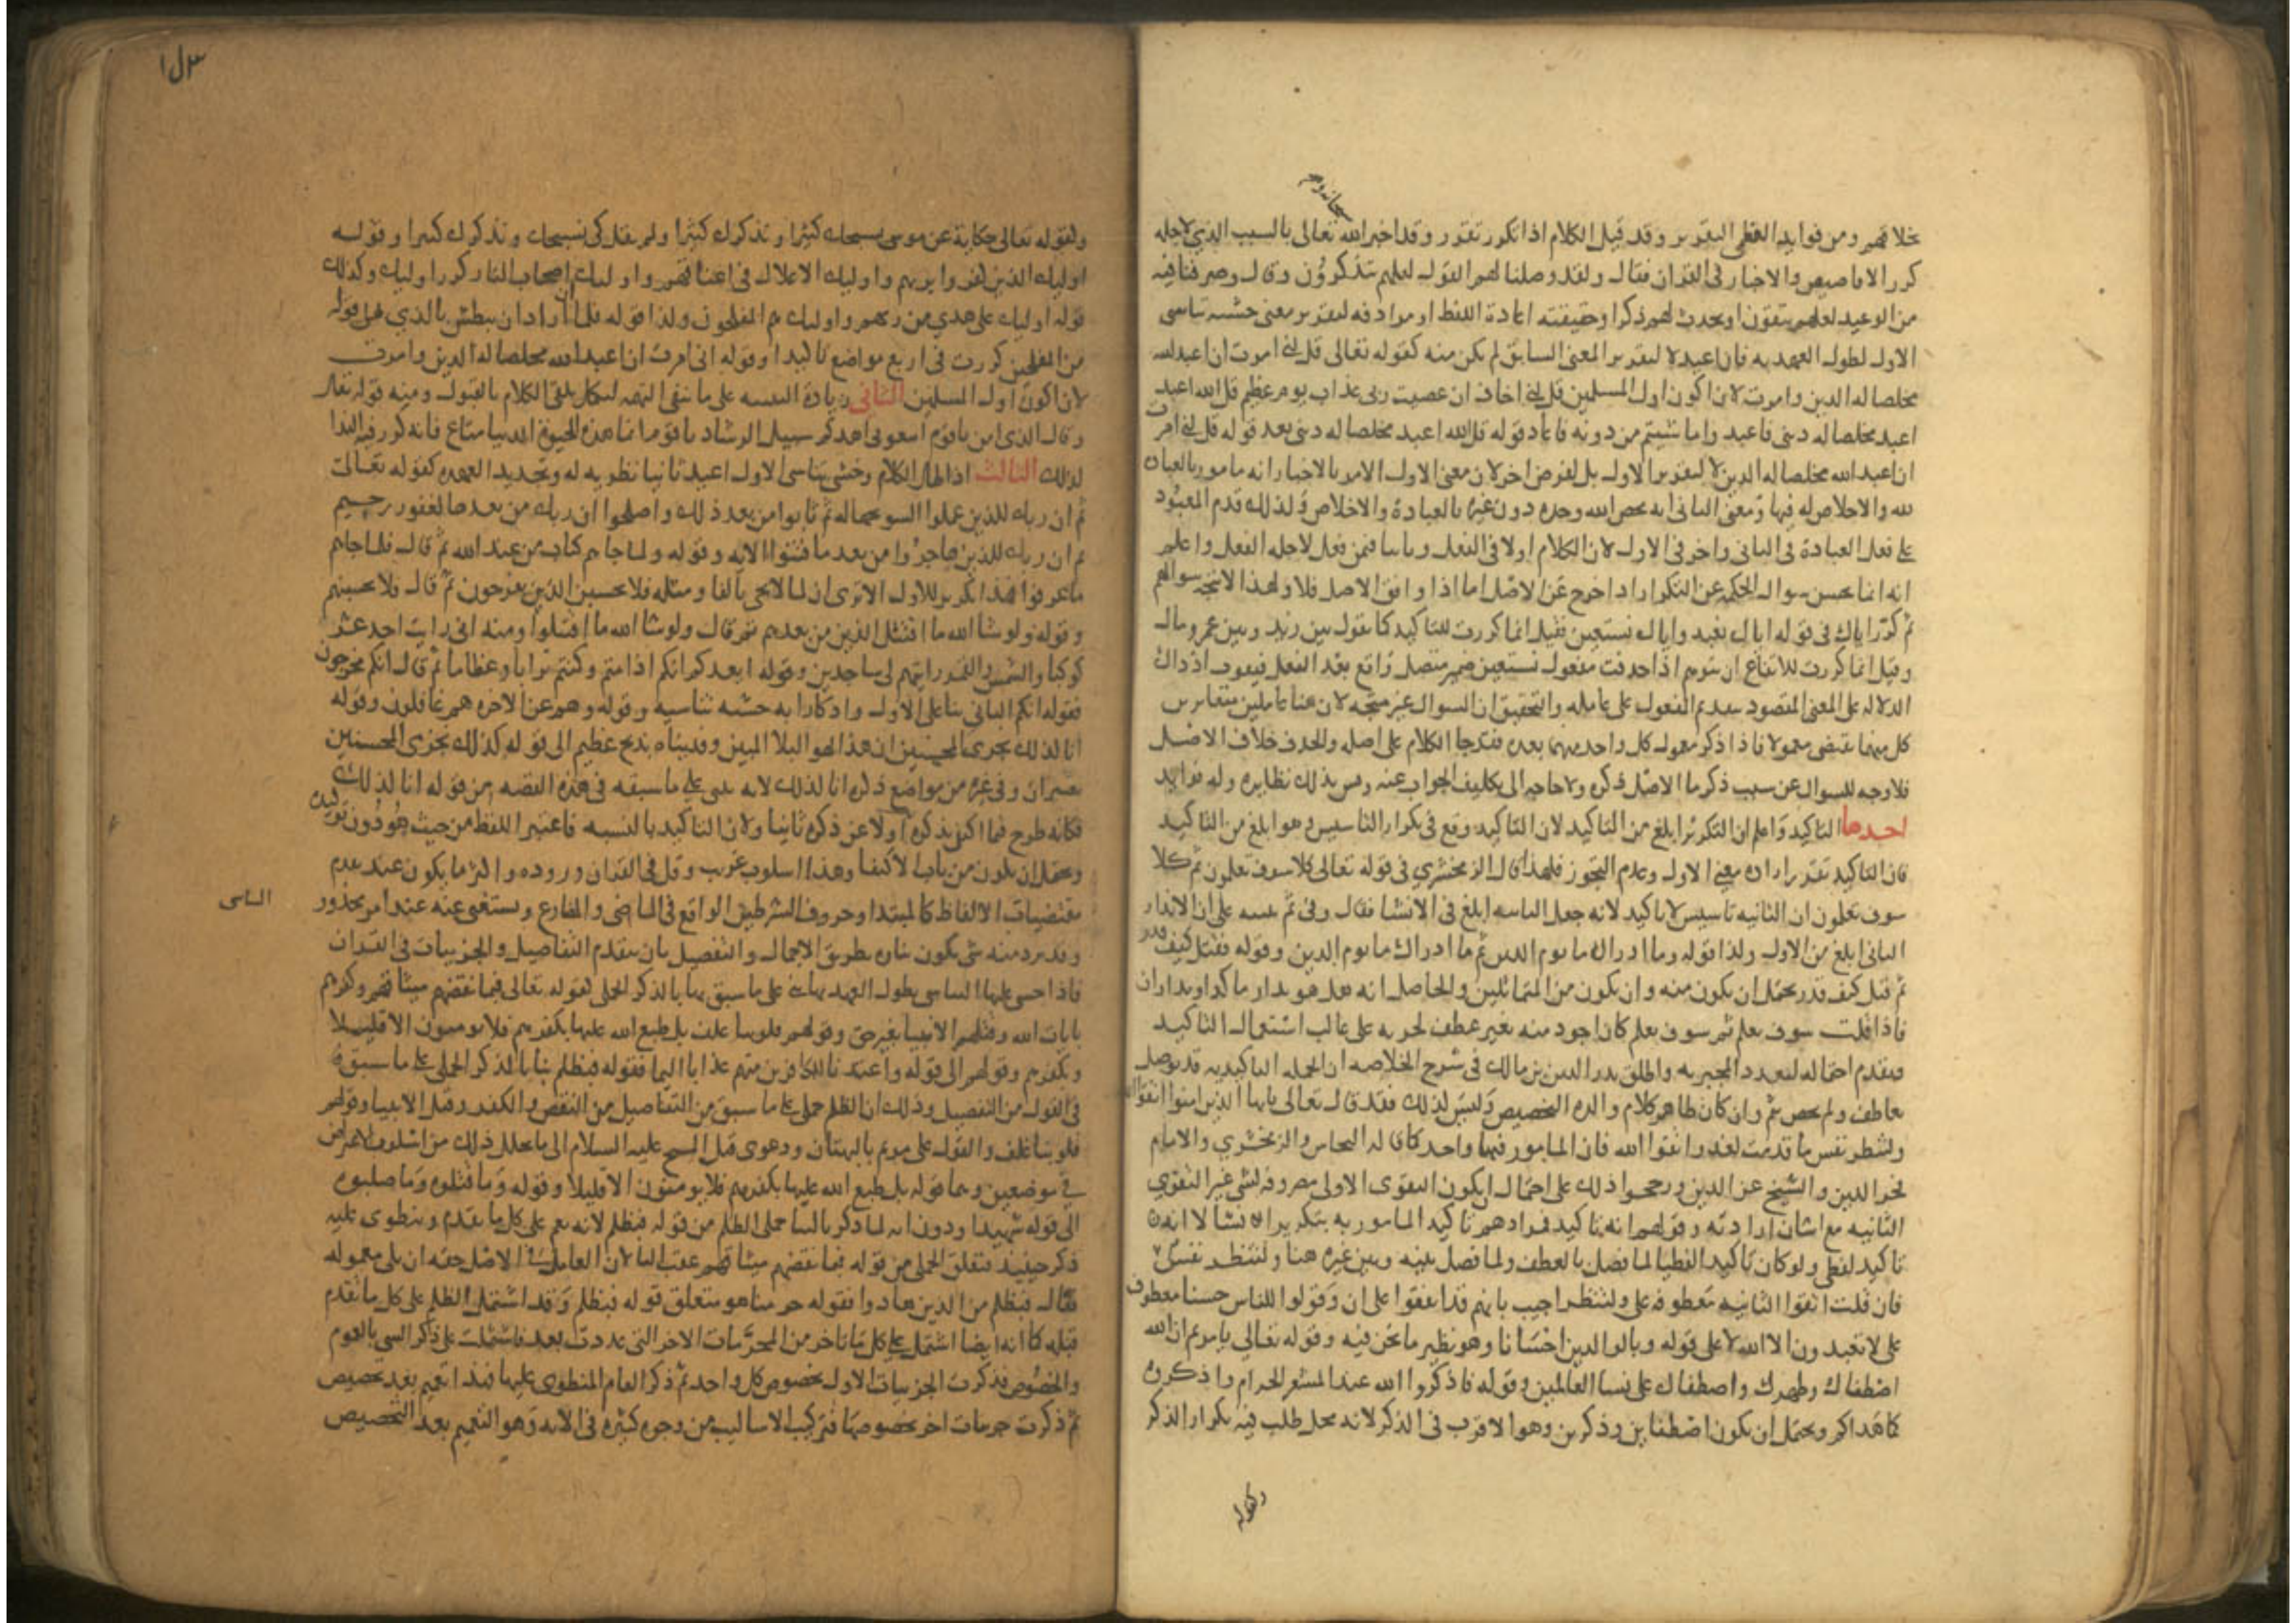 سبحانه وتعالى
خلافهم ومن فوايده العظمى التقرير وقد قيل الكلام اذا تكرر تقرر وقد اخبر الله تعالى بالسبب الذي لاجله
كرر الاقاصيص والاخبار في القران فقال ولقد وصلنا لهم القول لعلهم يتذكرون وقال وصرفنا فيه
من الوعيد لعلهم يتقون او يحدث لهم ذكرا وحقيقته اعادة اللفظ او مرادفه لتقرير معنى خشيه تناسى
الاول لطول العهد به فان اعيد لا لتقرير المعنى السابق لم يكن منه كقوله تعالى قل اني امرت ان اعبد الله
مخلصا له الدين وامرت لان اكون اول المسلمين قل اني اخاف ان عصيت ربي عذاب يوم عظيم قل الله اعبد
اعبد مخلصا له ديني فاعبدوا ما شيتم من دونه فاعاد قوله قل الله اعبد مخلصا له ديني بعد قوله قل اني امرت
ان اعبد الله مخلصا له الدين لا لتقرير الاول بل لغرض اخر لان معنى الاول الامر بالاخبار انه مامور بالعبادة
لله والاخلاص له فيها ومعنى الثاني انه يخص الله وحده دون غيره بالعبادة والاخلاص ولذلك قدم المعبود
على فعل العبادة في الثاني واخر في الاول لان الكلام اولا في الفعل وثانيا فيمن فعل لاجله الفعل واعلم
انه انما يحسن سوال الحكمة عن التكرار اذا خرج عن الاصل اما اذا وافق الاصل فلا ولهذا لا يتجه سوالهم
ثم كرر اياك في قوله اياك نعبد واياك نستعين فقيل انما كررت للتاكيد كما تقول بين زيد وبين عمرو مال
وقيل انما كررت للارتفاع ان يتوهم اذا حذفت مفعول نستعين ضمير متصل واقع بعد الفعل فيفوت اذ ذاك
الدلالة على المعنى المقصود بتقديم المفعول على عامله والتحقيق ان السوال غير متجه لان هنا عاملين متغايرين
كل منهما يقتضي معمولا فاذا ذكر معمول كل واحد منهما بعده فقد جا الكلام على اصله والحذف خلاف الاصل
فلا وجه للسوال عن سبب ذكر ما الاصل ذكره ولا حاجه الى تكليف الجواب عنه وقس بذلك نظايره وله فوايد
احدها التاكيد واعلم ان التكرير ابلغ من التاكيد لان التاكيد وقع في تكرار التاسيس وهو ابلغ من التاكيد
فان التاكيد يقرر اراده معنى الاول وعدم التجوز فلهذا قال الزمخشري في قوله تعالى كلا سوف تعلمون ثم كلا
سوف تعلمون ان الثانيه تاسيس لا تاكيد لانه جعل الثانيه ابلغ في الانشا فقال وفي ثم تنبيه على ان الانذار
الثاني ابلغ من الاول ولذا قوله وما ادراك ما يوم الدين ثم ما ادراك ما يوم الدين وقوله فقتل كيف قدر
ثم قتل كيف قدر يحتمل ان يكون منه وان يكون من المتماثلين والحاصل انه هل هو انذار ماكدا او انذاران
فاذا قلت سوف تعلم ثم سوف تعلم كان اجود منه بغير عطف لجريه على غالب استعمال التاكيد
ويقدم احتماله لتعدد المخبر به واطلق بدر الدين بن مالك في شرح الخلاصه ان الجمله التاكيديه قد توصل
بعاطف ولم يخص بثم وان كان ظاهر كلام والده التخصيص وليس لذلك فقد قال تعالى يايها الذين امنوا اتقوا الله
ولتنظر نفس ما قدمت لغد واتقوا الله فان المامور فيهما واحد كما قاله النحاس والزمخشري والامام
فخر الدين والشيخ عز الدين ورجحوا ذلك على احتمال ان يكون التقوى الاولى مصروفه لشي غير التقوى
الثانيه مع اشارة ارادته وقولهم انه تاكيد فمرادهم تاكيد المامور به بتكرير الانشا لا انه
تاكيد لفظي ولو كان تاكيدا لفظيا لما فصل بالعطف ولما فصل بينه وبين غيره هنا ولتنظر نفس
فان قلت اتقوا الثانيه معطوفه على ولتنظر اجيب بانهم قد اتفقوا على ان وقولوا للناس حسنا معطوف
على لا تعبدون الا الله لا على قوله وبالوالدين احسانا وهو نظير ما نحن فيه وقوله تعالى يا مريم ان الله
اصطفاك وطهرك واصطفاك على نسا العالمين وقوله فاذكروا الله عند المشعر الحرام واذكروه
كما هداكم ويحتمل ان يكون اصطفاين وذكرين وهو الاقرب في الذكر لانه محل طلب فيه تكرار الذكر
وكقوله
ولقوله تعالى حكاية عن موسى نسبحك كثيرا ونذكرك كثيرا ولم يقل كي نسبحك ونذكرك كثيرا وقوله
اوليك الذين كفروا بربهم واوليك الاغلال في اعناقهم واوليك اصحاب النار كرر اوليك وكذلك
قوله اوليك على هدي من ربهم واوليك هم المفلحون ولذا قوله فلما ان اراد ان يبطش بالذي الى قوله
من المصلحين كررت في اربع مواضع تاكيدا وقوله اني امرت ان اعبد الله مخلصا له الدين وامرت
لان اكون اول المسلمين الثاني زيادة التنبيه على ما ينفي التهمه ليكمل تلقي الكلام بالقبول ومنه قوله تعالى
وقال الذي امن يا قوم اتبعوني اهدكم سبيل الرشاد يا قوم انما هذه الحيوة الدنيا متاع فانه كرر فيه الندا
لذلك الثالث اذا طال الكلام وخشي تناسى الاول اعيد ثانيا تطريه له وتجديدا لعهده كقوله تعالى
ثم ان ربك للذين عملوا السو بجهاله ثم تابوا من بعد ذلك واصلحوا ان ربك من بعدها لغفور رحيم
ثم ان ربك للذين هاجروا من بعد ما فتنوا الايه وقوله ولما جاهم كتاب من عند الله ثم قال فلما جاهم
ما عرفوا فهذا تكرير للاول الا ترى ان لما لا تجي بالفا ومثله فلا تحسبن الذين يفرحون ثم قال فلا تحسبنهم
وقوله ولو شا الله ما اقتتل الذين من بعدهم ثم قال ولو شا الله ما اقتتلوا ومنه اني رايت احد عشر
كوكبا والشمس والقمر رايتهم لي ساجدين وقوله ايعدكم انكم اذا متم وكنتم ترابا وعظاما ثم قال انكم مخرجون
فقوله انكم الثاني بنا على الاول واذكارا به خشيه تناسيه وقوله وهم عن الاخره هم غافلون وقوله
انا لذلك نجزي المحسنين ان هذا لهو البلا المبين وفديناه بذبح عظيم الى قوله كذلك نجزي المحسنين
بغير ان وفي غيره من مواضع ذكره انا لذلك لانه بنى على ما سبقه في هذه القصه من قوله انا لذلك
فكانه طرح فيما اكتفى بذكره اولا عن ذكره ثانيا ولان التاكيد بالنسبه فاعتبر اللفظ من حيث هو دون توكيده
ويحتمل ان يكون من باب الاكتفا وهذا اسلوب غريب وقل في القران وروده واكثر ما يكون عند تقدم
مقتضيات الالفاظ كالمبتدا وحروف الشرطين الواقع في الماضي والمضارع ويستغنى عنه عند امر محذور
وقد يرد منه شي يكون بناه بطريق الاجمال والتفصيل بان يتقدم التفاصيل والجزييات في القران
فاذا خشي عليها التناسى لطول العهد بها بنى على ما سبق بها بالذكر الجملي لقوله تعالى فبما نقضهم ميثاقهم وكفرهم
بايات الله وقتلهم الانبيا بغير حق وقولهم قلوبنا غلف بل طبع الله عليها بكفرهم فلا يومنون الا قليلا
وبكفرهم وقولهم الى قوله واعتدنا للكافرين منهم عذابا اليما فقوله فبظلم بنا بالذكر الجملي على ما سبقه
في القول من التفصيل وذلك ان الظلم جملي على ما سبق من التفاصيل من النقض والكفر وقتل الانبيا وقولهم
قلوبنا غلف والقول على مريم بالبهتان ودعوى قتل المسيح عليه السلام الى ما تخلل ذلك من اسلوب الاعتراض
في موضعين وهما قوله بل طبع الله عليها بكفرهم فلا يومنون الا قليلا وقوله وما قتلوه وما صلبوه
الى قوله شهيدا ودون انه لما ذكر بالبنا جملي الظلم من قوله فبظلم لانه يعم على كل ما تقدم وينطوى عليه
ذكر حينيذ متعلق الجملي من قوله فبما نقضهم ميثاقهم عقب البا لان العامل في الاصل حقه ان يلي معموله
فقال فبظلم من الذين هادوا فقوله حرمنا هو متعلق قوله فبظلم وقد اشتمل الظلم على كل ما تقدم
قبله كما انه ايضا اشتمل على كل ما تاخر من المحرمات الاخر التي عددت بعد فاشتملت على ذكر الشي بالعموم
والخصوص فذكرت الجزييات الاول بخصوص كل واحد ثم ذكر العام المنطوى عليها فهذا تعميم بعد تخصيص
ثم ذكرت جزييات اخر بخصوصها فتركيب الاساليب من وجوه كثيره في الايه وهو التعميم بعد التخصيص